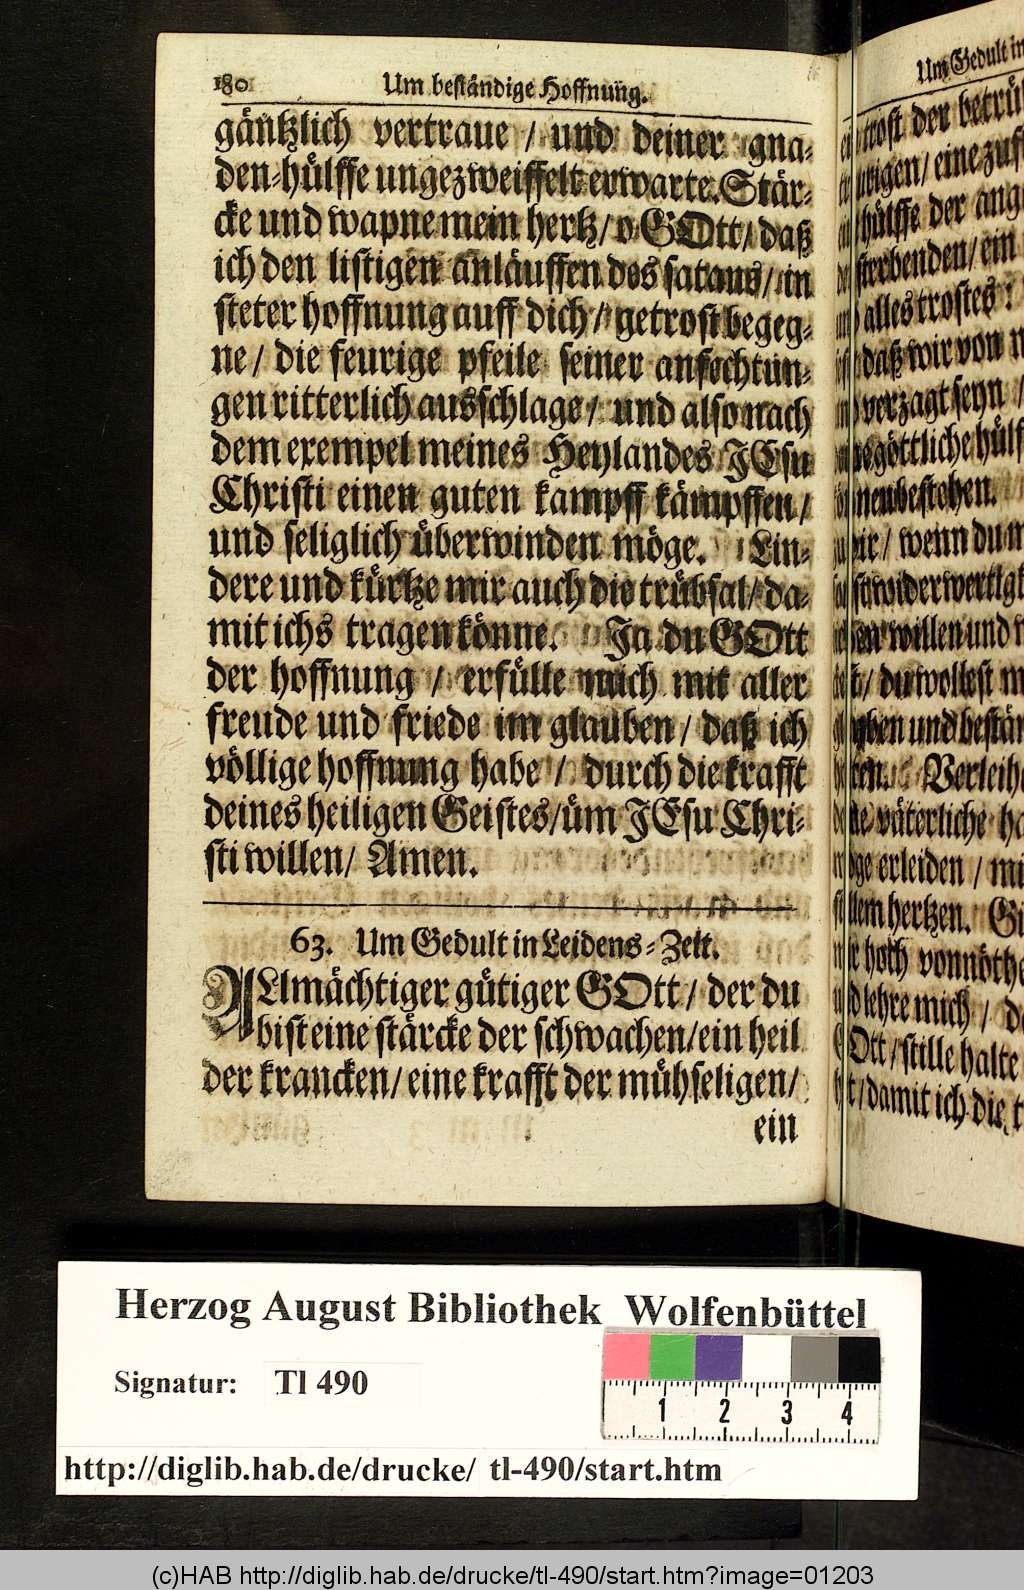 180 Um beständige Hoffnung.
gäntzlich vertraue / und deiner gna-
den-hülffe ungezweiffelt erwarte. Stär-
cke und wapne mein hertz / o GOtt / daß
ich den listigen anläuffen des satans / in
steter hoffnung auff dich / getrost begeg-
ne / die feurige pfeile seiner anfechtun-
gen ritterlich ausschlage / und also nach
dem exempel meines Heylandes JEsu
Christi einen guten kampff kämpffen /
und seliglich überwinden möge. Lin-
dere und kürtze mir auch die trübsal / da-
mit ichs tragen könne. Ja du GOtt
der hoffnung / erfülle mich mit aller
freude und friede im glauben / daß ich
völlige hoffnung habe / durch die krafft
deines heiligen Geistes / üm JEsu Chri-
sti willen / Amen.
63. Um Gedult in Leidens-Zeit.
ALlmächtiger gütiger GOtt / der du
bist eine stärcke der schwachen / ein heil
der krancken / eine krafft der mühseligen /
ein
Um Gedult in
trost der
/ eine
hülffe der
sterbenden / ein
alles trostes
daß wir von
verzagt seyn /
göttliche
bestehen.
/ wenn du
willen und
/ du wollest
und
Verleihe
väterliche
erleiden /
hertzen.
hoch
lehre mich /
/ stille halte
/ damit ich die
Herzog August Bibliothek Wolfenbüttel
Signatur: Tl 490
1 2 3 4
http://diglib.hab.de/drucke/ tl-490/start.htm
(c)HAB http://diglib.hab.de/drucke/tl-490/start.htm?image=01203